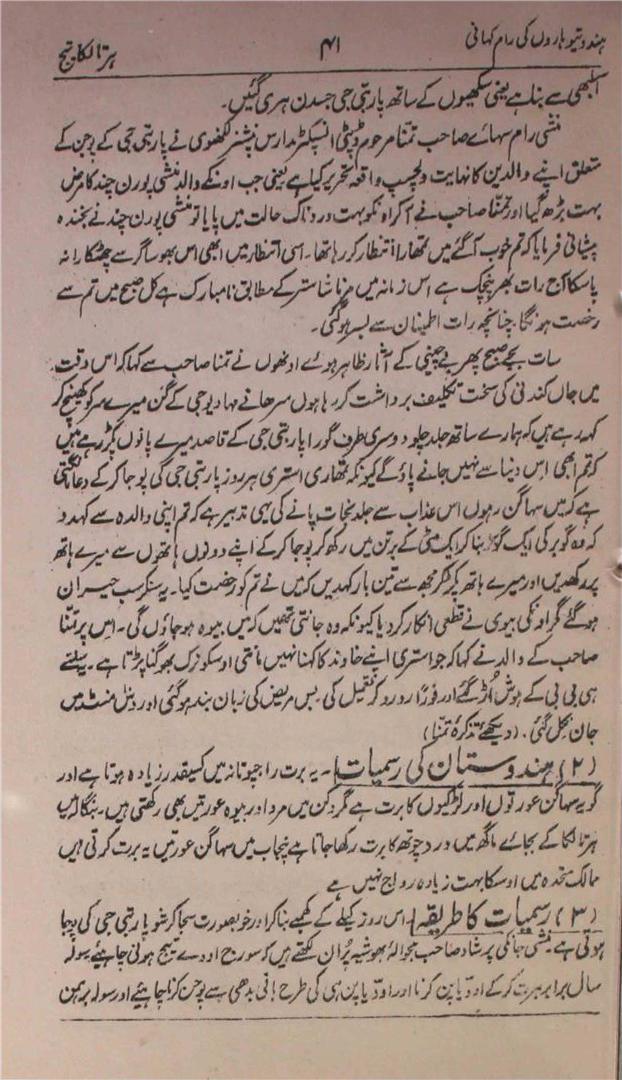 ہندو تیوہاروں کی رام کہانی ۴۱ ہرتالکا تیج
آلبھی سے بنا ہے یعنی سکھیوں کے ساتھ پاربتی جی جسدن ہری گئیں۔
منشی رام سہائے صاحب تمنّا مرحوم ڈپٹی انسپکٹر مدارس پنشنر لکھنوی نے پاربتی جی کے پوجن کے
متعلق اپنے والدین کا نہایت دلچسپ واقعہ تحریر کیا ہے یعنی جب اونکے والد منشی پورن چند کا مرض
بہت بڑھ گیا اور تمنّا صاحب نے آکر اونکو بہت دردناک حالت میں پایا تو منشی پورن چند نے بخندہ
پیشانی فرمایا کہ تم خوب آگئے میں تمھارا انتظار کر رہا تھا۔ اسی انتظار میں ابھی اس بھوساگر سے چھٹکارا نہ
پاسکا آج رات بھر پنچک ہے اس زمانہ میں مرنا شاستر کے مطابق نا مبارک ہے کل صبح میں تم سے
رخصت ہونگا چنانچہ رات اطمینان سے بسر ہوگئی۔
سات بجے صبح پھر بے چینی کے آثار ظاہر ہوئے اونھوں نے تمنا صاحب سے کہا کہ اس وقت
میں جاں کندنی کی سخت تکلیف برداشت کر رہا ہوں سرھانے مہادیو جی کے گن میرے سر کو کھینچ کر
کہہ رہے ہیں کہ ہمارے ساتھ جلد چلو دوسری طرف گورا پاربتی جی کے قاصد میرے پانوں پکڑ رہے ہیں
کہ تم ابھی اس دنیا سے نہیں جانے پاؤ گے کیونکہ تمھاری استری ہر روز پاربتی جی کی پوجا کر کے دعا مانگتی
ہے کہ میں سہاگن رہوں اس عذاب سے جلد نجات پانے کی یہی تدبیر ہے کہ تم اپنی والدہ سے کہدو
کہ وہ گوبر کی ایک گوَر بنا کر ایک مٹی کے برتن میں رکھ کر پوجا کر کے اپنے دونوں ہاتھوں سے میرے ہاتھ
پر رکھدیں اور میرے ہاتھ پکڑ کر مجھ سے تین بار کہدیں کہ میں نے تم کو رخصت کیا۔ یہ سنکر سب حیران
ہو گئے مگر اونکی بیوی نے قطعی انکار کر دیا کیونکہ وہ جانتی تھیں کہ میں بیوہ ہو جاؤں گی۔ اس پر تمنّا
صاحب کے والد نے کہا کہ جو استری اپنے خاوند کا کہنا نہیں مانتی اوسکو نرک بھوگنا پڑتا ہے۔ یہ سنتے
ہی بی بی کے ہوش اُڑ گئے اور فوراً رو رو کر تعمیل کی۔ بس مریض کی زبان بند ہوگئی اور دس منٹ میں
جان نکل گئی۔ (دیکھئے تذکرۂ تمنّا)
(۲) ہندوستان کی رسمیات۔ یہ برت راجپوتانہ میں کسیقدر زیادہ ہوتا ہے اور
گو یہ سہاگن عورتوں اور لڑکیوں کا برت ہے مگر دکن میں مرد اور بیوہ عورتیں بھی رکھتی ہیں۔ بنگال میں
ہرتالکا کے بجائے ماگھ میں درد چوتھ کا برت رکھا جاتا ہے پنجاب میں سہاگن عورتیں یہ برت کرتی ہیں
ممالک متحدہ میں اوسکا بہت زیادہ رواج نہیں ہے
(۳) رسمیات کا طریقہ۔ اس روز کیلے کے کھمبے بنا کر اور خوبصورت سجا کر شو پاربتی جی کی پوجا
ہوتی ہے۔ منشی جانکی پرشاد صاحب بحوالہ بھوشیہ پُران لکھتے ہیں کہ سورج اودے تیج ہونی چاہیئے سولہ
سال برابر برت کر کے اودیاپن کرنا اور اودیاپن ہی کی طرح بدھی سے پوجن کرنا چاہیئے اور سولہ برہمن